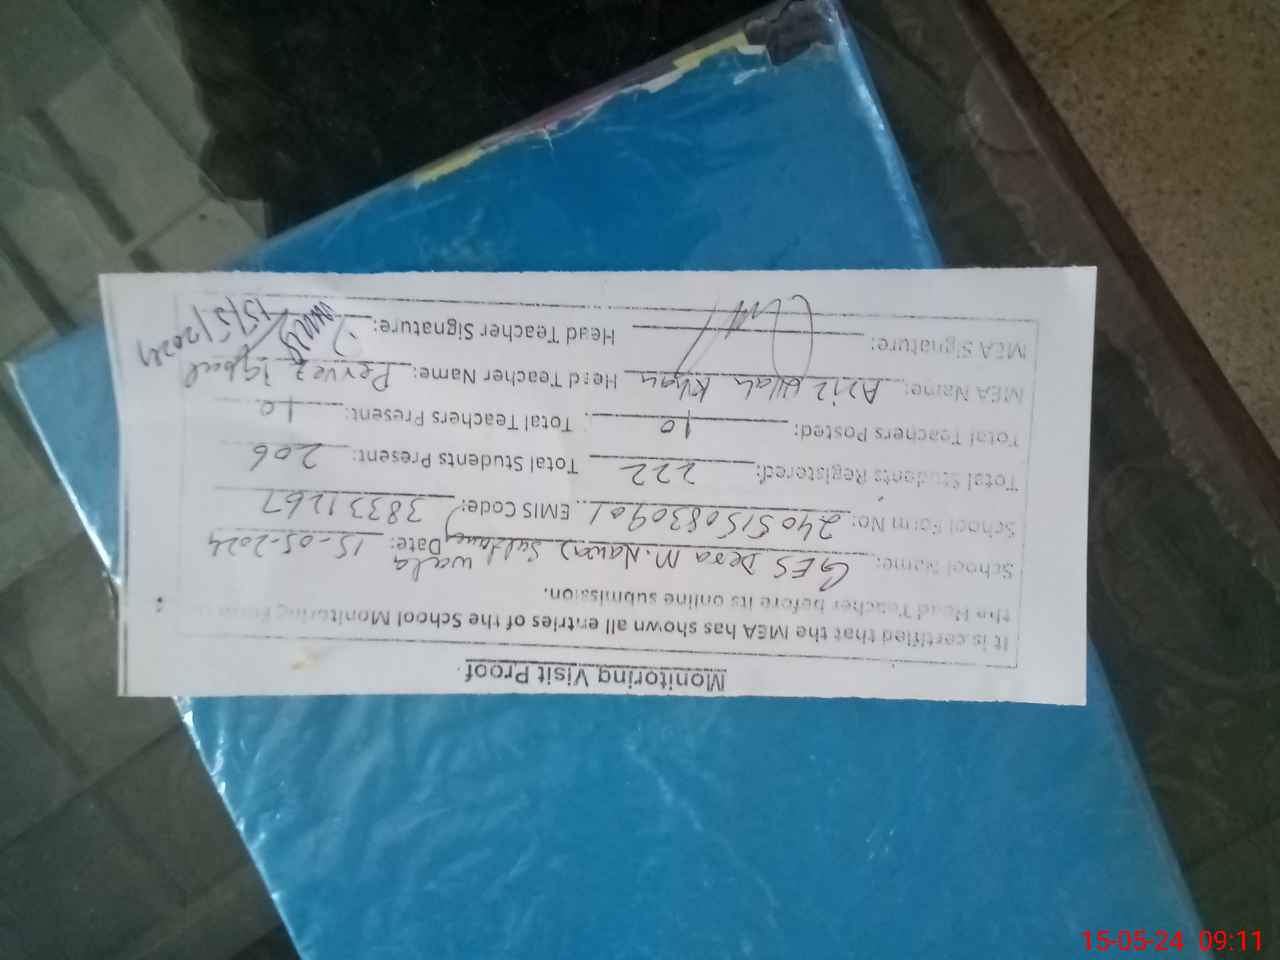 Monitoring Visit Proof.
It is certified that the MEA has shown all entries of the School Monitoring Form to
the Head Teacher before its online submission.
School Name: GES Dera M. Nawaz Sultane wala Date: 15-05-2024
School Form No: 2405150830901 EMIS Code: 38331267
Total Students Registered: 222 Total Students Present: 206
Total Teachers Posted: 10 Total Teachers Present: 10
MEA Name: Aziz Ullah Khan Head Teacher Name: Pervez Iqbal
MEA Signature: Head Teacher Signature:
15/5/2024
15-05-24 09:11